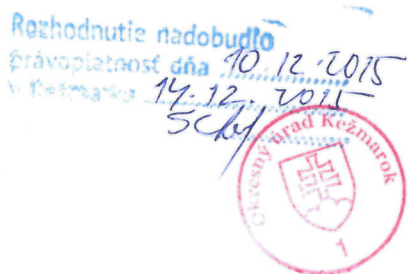 Rozhodnutie nadobudlo
právoplatnosť dňa 10.12.2015
v Kežmarku 14.12.2015
Okresný úrad Kežmarok
1